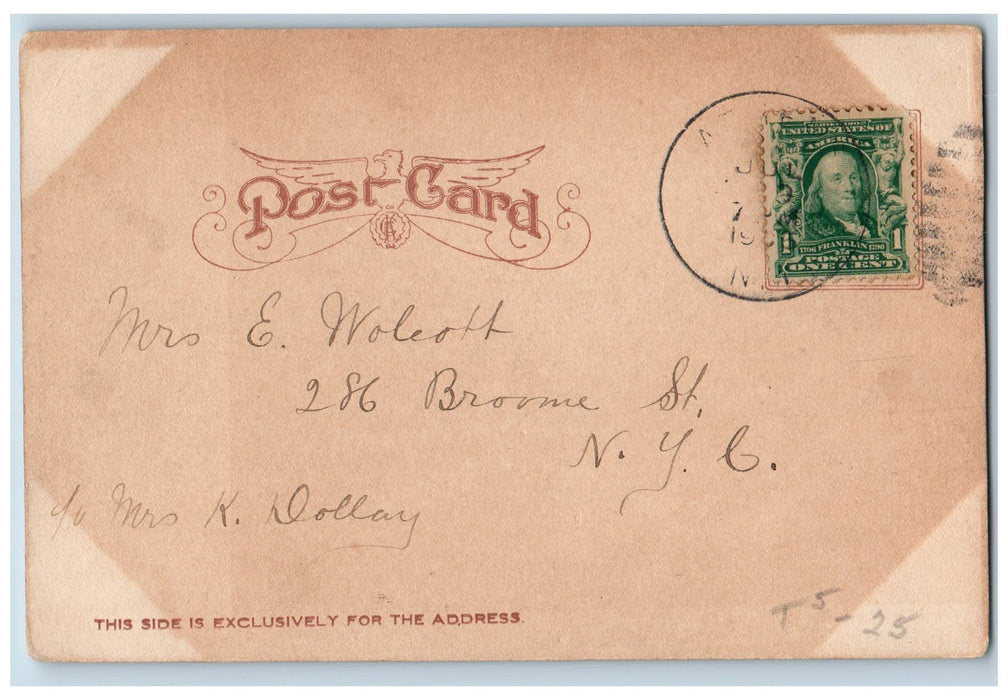 Post Card
SERIES 1902
UNITED STATES OF
AMERICA
1706 FRANKLIN 1790
1 1
POSTAGE
ONE CENT
Mrs E. Wolcott
286 Broome St.
N. Y. C.
c/o Mrs K. Dollay
THIS SIDE IS EXCLUSIVELY FOR THE ADDRESS.
T 5 - 25